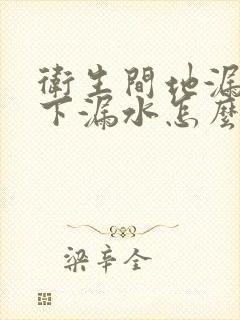 衛生間地漏
下漏水怎麼
梁辛全